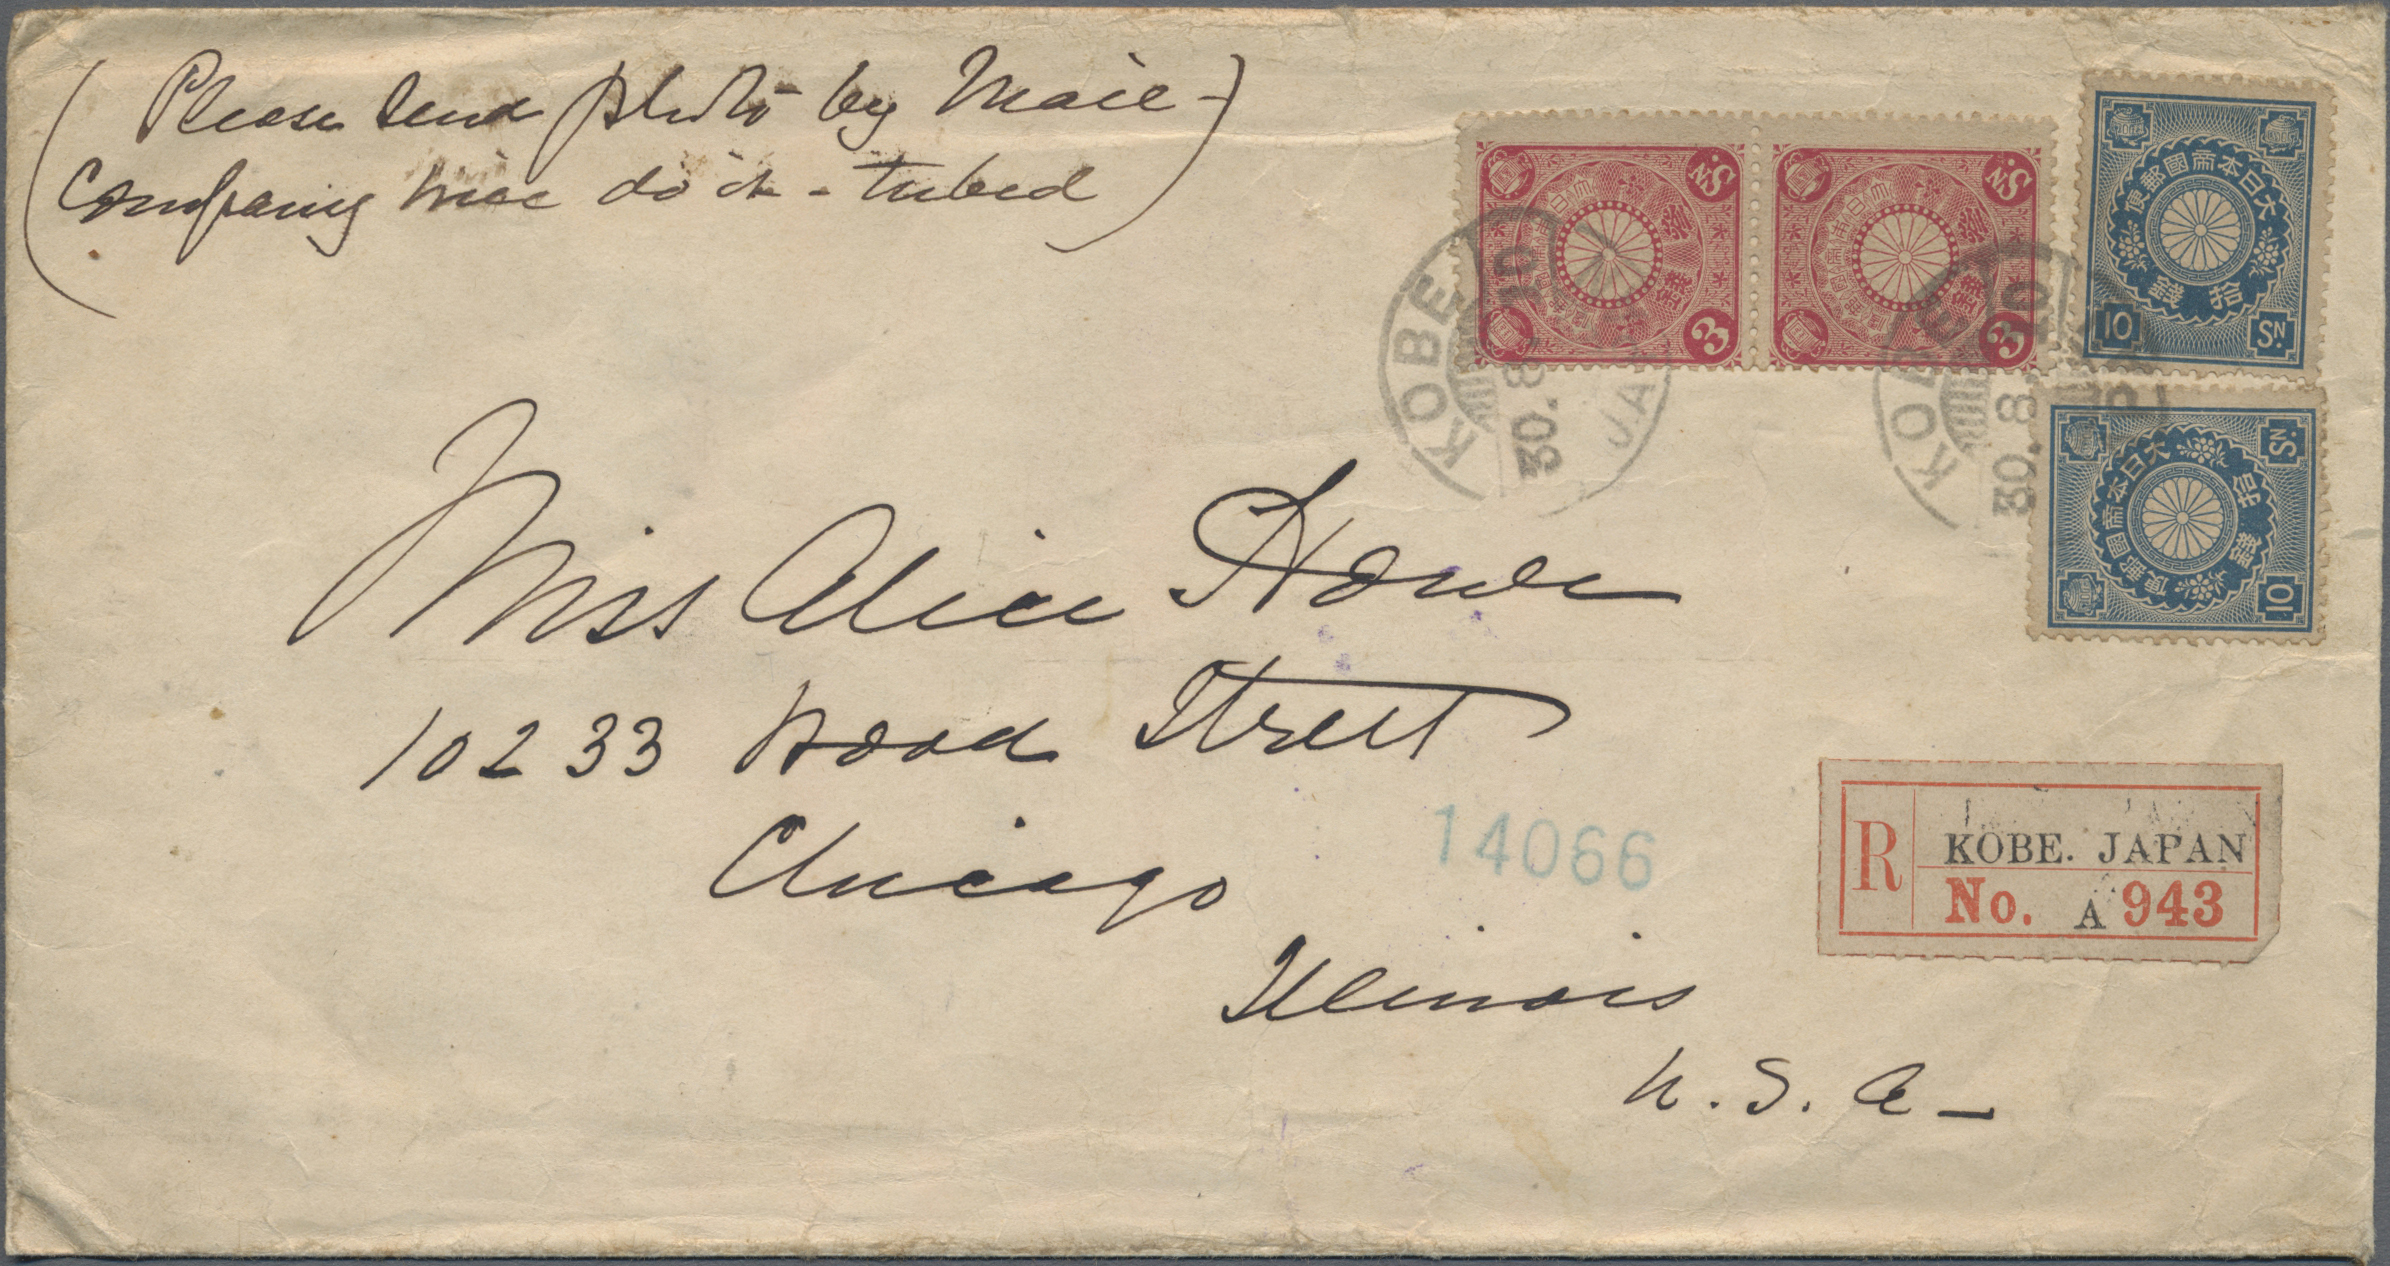 (Please send photo by Mail -
Company will do it - tubed)
3 SN.
銭
3 SN.
銭
大日本帝國郵便
拾銭
10 SN.
大日本帝國郵便
拾銭
10 SN.
KOBE
30. 8. 10
JA
KOBE
30. 8. 10
Miss Alice Howe
10233 Hood Street
Chicago
Illinois
U.S.A -
14066
R KOBE. JAPAN
No. A 943